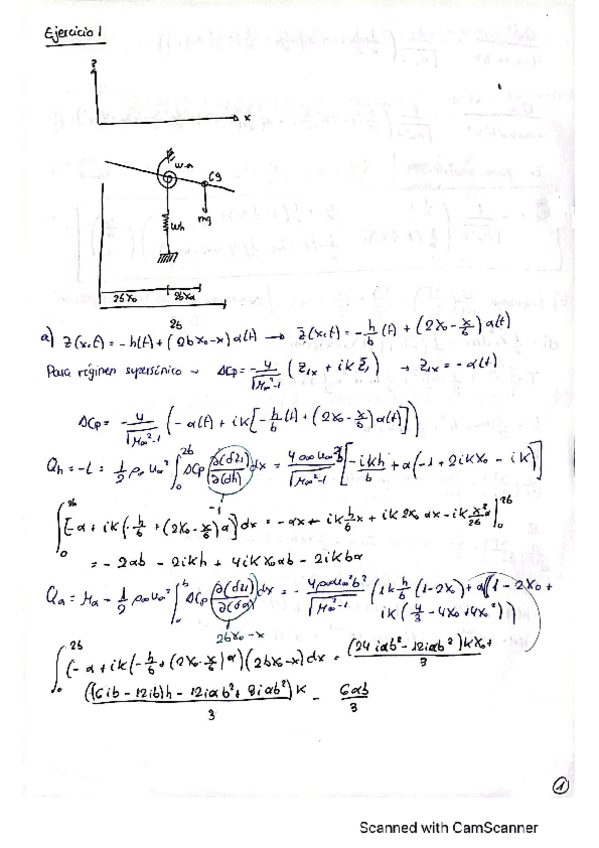 Ejercicio 1
z
x
wα
CG
mg
wh
2bx₀ 2bxα
2b
a) z(x,t) = -h(t) + (2bx₀-x)α(t) → z̄(x,t) = -h/b (t) + (2x₀ - x/b) α(t)
Para régimen supersónico ~ ΔCp = -4/√(M∞²-1) (z₁ₓ + ik z̄₁) → z₁ₓ = -α(t)
ΔCp = -4/√(M∞²-1) (-α(t) + ik[-h/b (t) + (2x₀ - x/b)α(t)])
Qh = -L = 1/2 ρ∞ u∞² ∫₀^2b ΔCp ∂(dz₁)/∂(dh) dx = 4ρ∞u∞²b/√(M∞²-1) [-ikh/b + α(-1 + 2ikx₀ - ik)]
-1
∫₀^2b [-α + ik(-h/b + (2x₀ - x/b)α)] dx = -αx - ik h/b x + ik 2x₀ αx - ik x²/2b α |₀^2b
= -2αb - 2ikh + 4ikx₀αb - 2ikbα
Qα = Mα = 1/2 ρ∞u∞² ∫₀^b ΔCp ∂(dz₁)/∂(dα) dx = - 4ρ∞u∞²b²/√(M∞²-1) (ik h/b (1-2x₀) + α(1 - 2x₀ +
ik(4/3 - 4x₀ + 4x₀²)))
2bx₀-x
∫₀^2b (-α + ik(-h/b + (2x₀ - x/b)α))(2bx₀-x)dx = (24iαb² - 12iαb²)kx₀ +
/3
((6ib - 12ib)h - 12iαb² + 8iαb²)k/3 - 6αb/3
1
Scanned with CamScanner